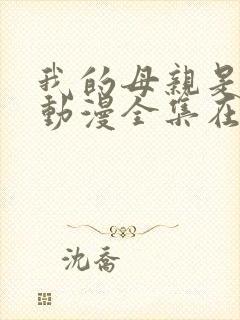 我的母親是
動漫全集在
沈喬